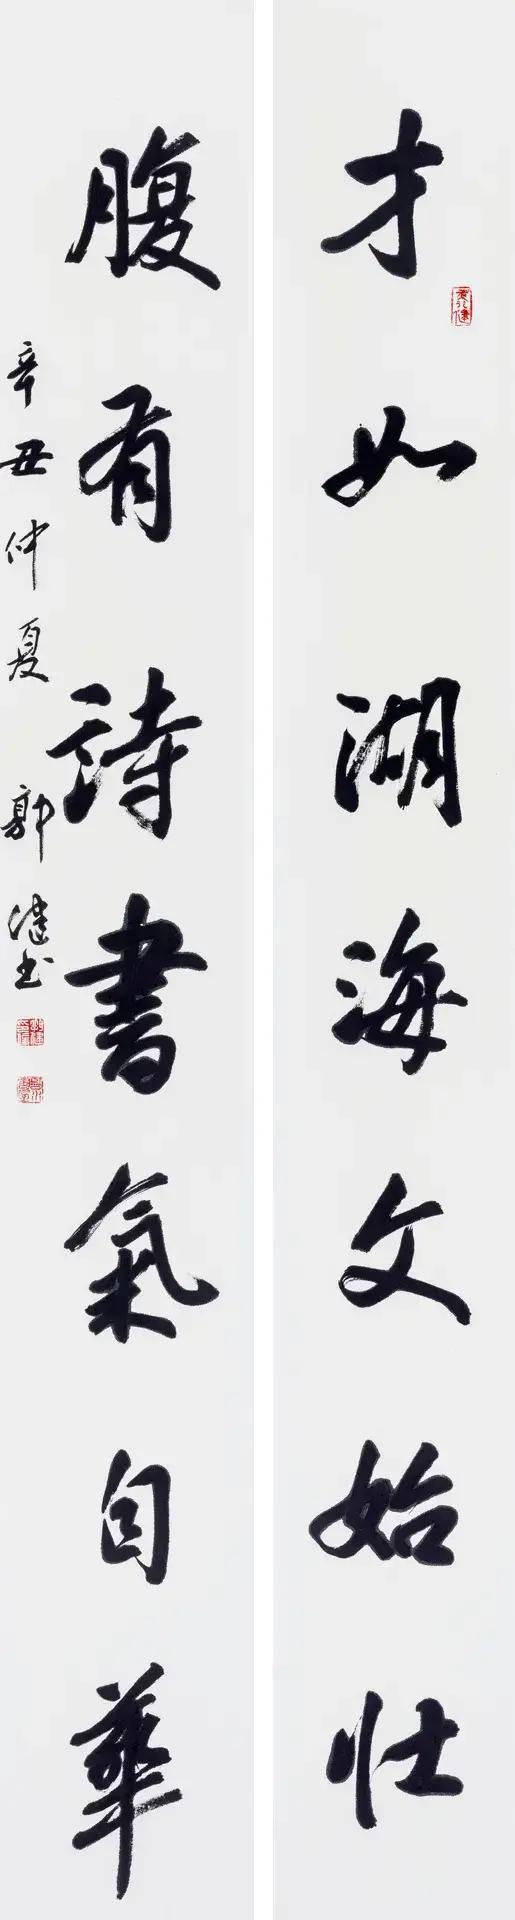 才如湖海文始壯
腹有詩書氣自華
辛丑仲夏 郭健书